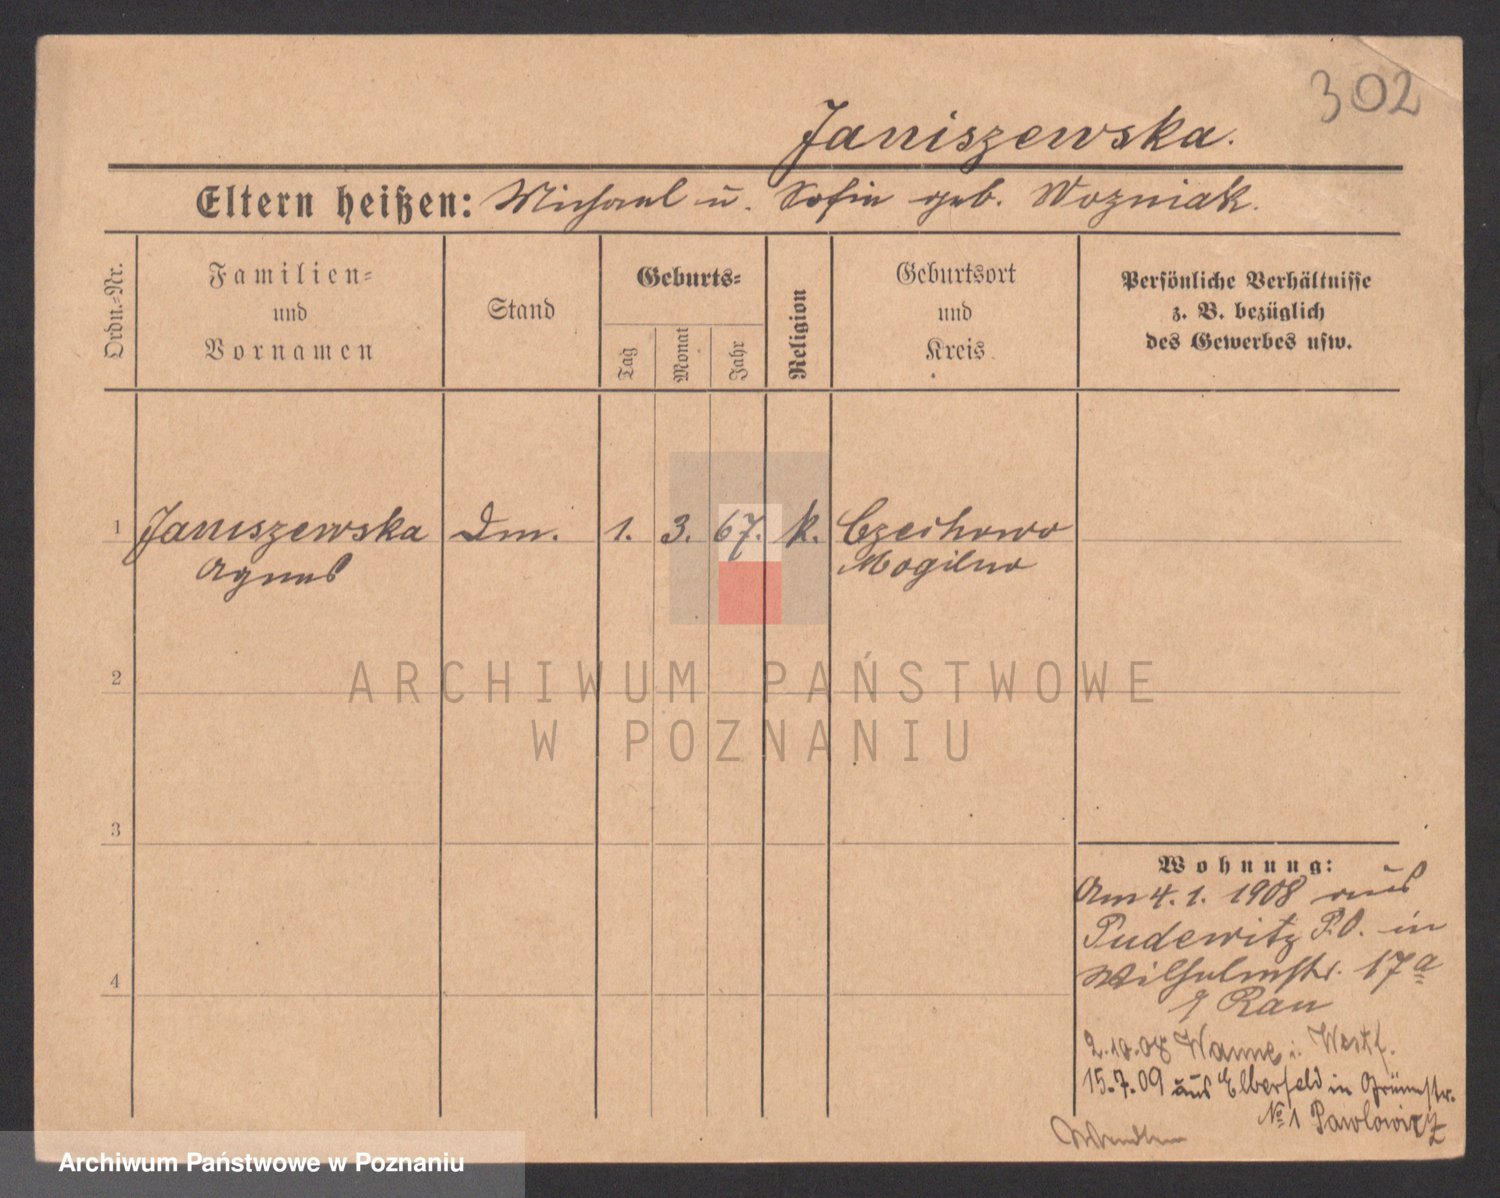 302
Janiszewska.
Eltern heißen: Michael u. Sofie geb. Wozniak.
Ordn.-Nr.
Familien-
und
Vornamen
Stand
Geburts-
Tag
Monat
Jahr
Religion
Geburtsort
und
Kreis
Persönliche Verhältnisse
z. B. bezüglich
des Gewerbes usw.
1 Janiszewska Dm. 1. 3. 67. k. Czechowo
Agnes Mogilno
2
ARCHIWUM PAŃSTWOWE
W POZNANIU
3
Wohnung:
Am 4. 1. 1908 aus
Pudewitz P.O. in
Wilhelmstr. 17a
Rau
2.10.08 Wanne i. Westf.
15.7.09 aus Elberfeld in Grünestr.
№ 1 Pawlowicz
4
Archiwum Państwowe w Poznaniu